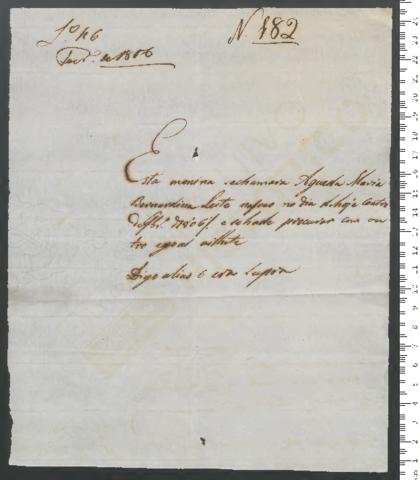 L.º 46
N. 482
Fev.º de 1806
Esta menina sechamara Agueda Maria
Bernardina Leite nasceo no dia dehoje
de 1806 / e sehade procurar com ou
tro igoal bilhete
Digo alias era supra